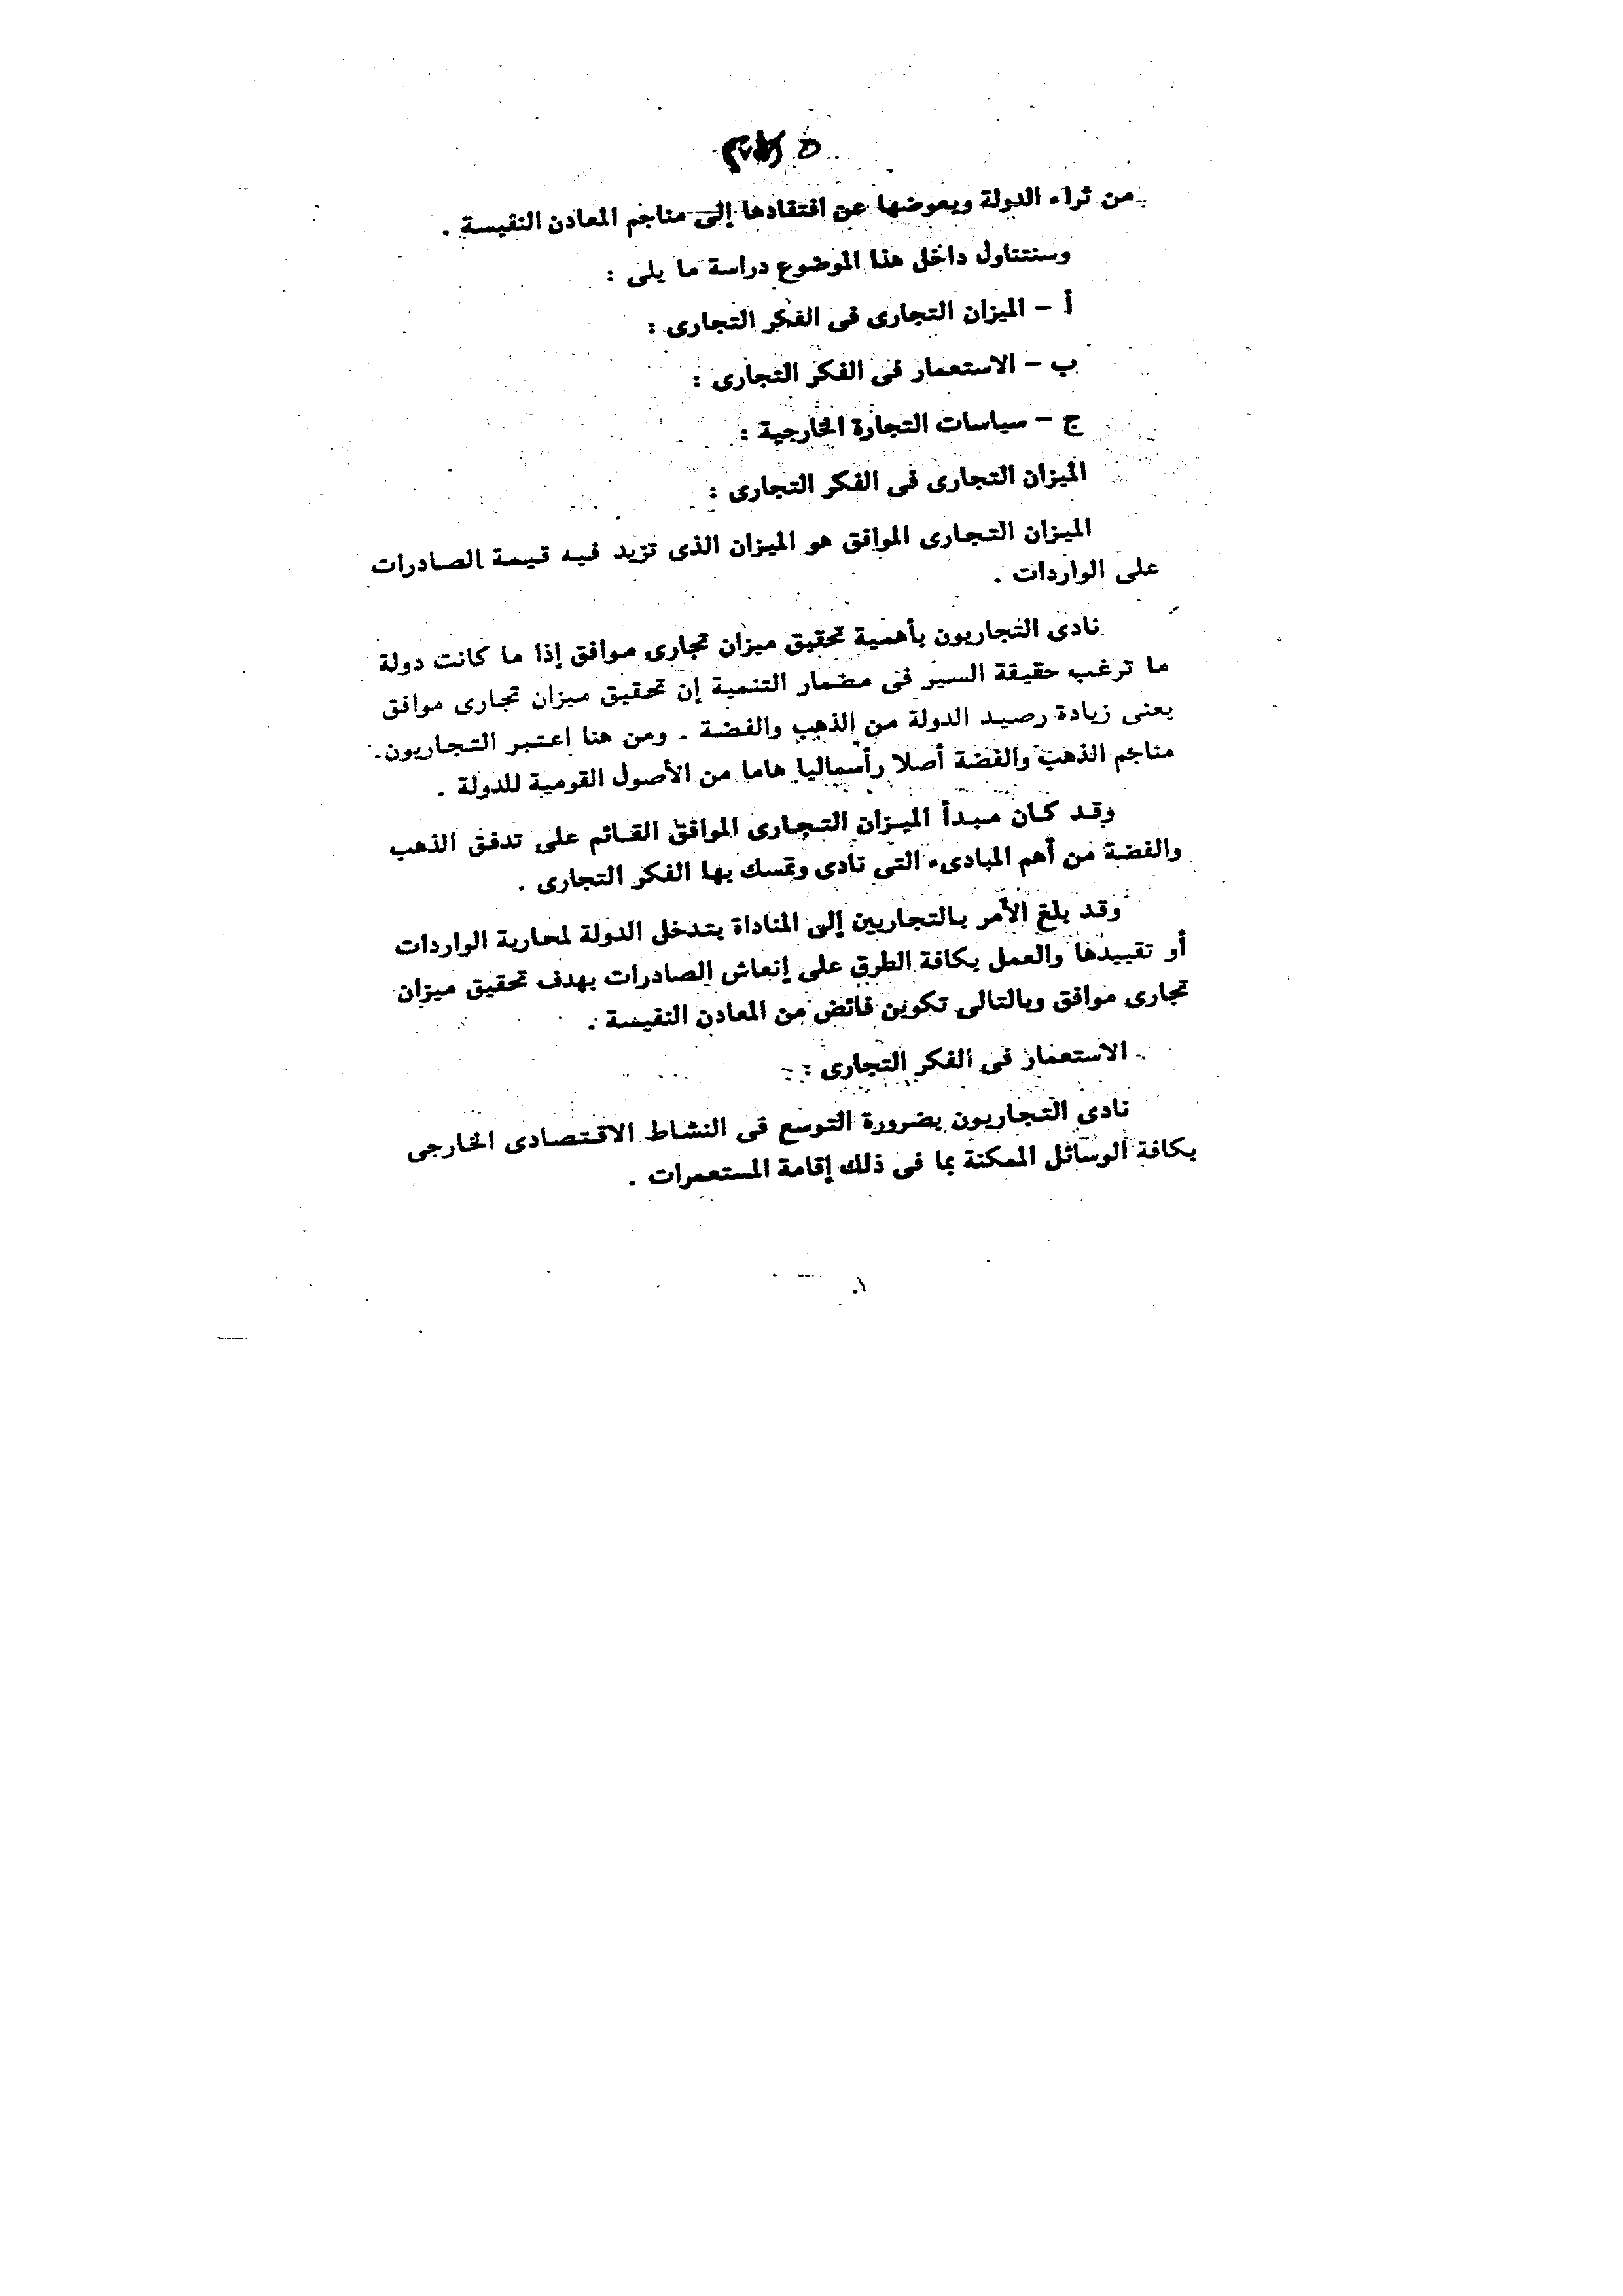 من ثراء الدولة ويعوضها عن افتقادها إلى مناجم المعادن النفيسة .
وسنتناول داخل هذا الموضوع دراسة ما يلى :
أ – الميزان التجارى فى الفكر التجارى :
ب – الاستعمار فى الفكر التجارى :
ج – سياسات التجارة الخارجية :
الميزان التجارى فى الفكر التجارى :
الميزان التجارى الموافق هو الميزان الذى تزيد فيه قيمة الصادرات
على الواردات .
نادى التجاريون بأهمية تحقيق ميزان تجارى موافق إذا ما كانت دولة
ما ترغب حقيقة السير فى مضمار التنمية إن تحقيق ميزان تجارى موافق
يعنى زيادة رصيد الدولة من الذهب والفضة . ومن هنا اعتبر التجاريون
مناجم الذهب والفضة أصلا رأسماليا هاما من الأصول القومية للدولة .
وقد كان مبدأ الميزان التجارى الموافق القائم على تدفق الذهب
والفضة من أهم المبادىء التى نادى وتمسك بها الفكر التجارى .
وقد بلغ الأمر بالتجاريين إلى المناداة بتدخل الدولة لمحاربة الواردات
أو تقييدها والعمل بكافة الطرق على إنعاش الصادرات بهدف تحقيق ميزان
تجارى موافق وبالتالى تكوين فائض من المعادن النفيسة .
الاستعمار فى الفكر التجارى :
نادى التجاريون بضرورة التوسع فى النشاط الاقتصادى الخارجى
بكافة الوسائل الممكنة بما فى ذلك إقامة المستعمرات .